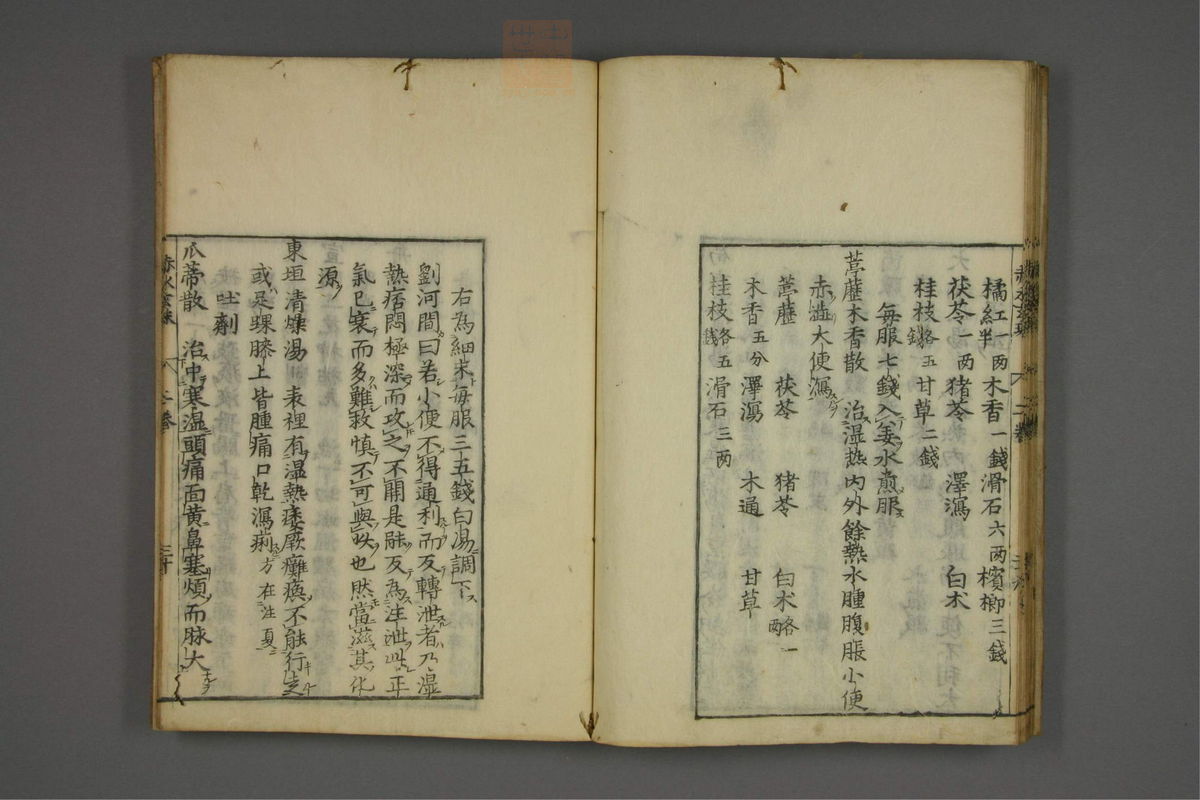 橘紅一两半木香一錢滑石六两檳榔三錢
茯苓一两猪苓 澤瀉 白朮
桂枝各五錢甘草二錢
毎服七錢入姜水煎服ス
葶藶木香散 治湿热内外餘熱水腫腹脹小便
赤澁大便瀉
葶藶 茯苓 猪苓 白朮各一两
木香五分 澤瀉 木通 甘草
桂枝各五錢滑石三两
右為細末毎服三五錢白湯調下ス
劉河間曰若小便不得通利而反轉泄者乃湿
熱痞悶極深而攻之不開是䏻反為注泄此正
氣已衰而多難救慎不可與攻也然當滋其化
源
東垣清燥湯 表裡有湿熱痿厥癱瘓不能行走
或足踝膝上皆腫痛口乾瀉痢方在注夏
吐劑
瓜蒂散 治中寒湿頭痛面黄鼻塞煩而脉大